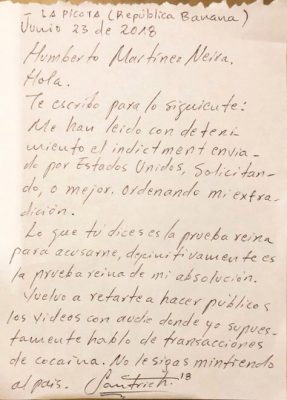 - LA PICOTA (República Banana)
Junio 23 de 2018
Humberto Martínez Neira.
Hola.
Te escribo para lo siguiente:
Me han leído con deteni-
miento el indictment envia-
do por Estados Unidos, solicitan-
do, o mejor, ordenando mi extra-
dición.
Lo que tú dices es la prueba reina
para acusarme, definitivamente es
la prueba reina de mi absolución.
Vuelvo a retarte a hacer públicos
los videos con audio donde yo supues-
tamente hablo de transacciones
de cocaína. No le sigas mintiendo
al país. Santrich '18